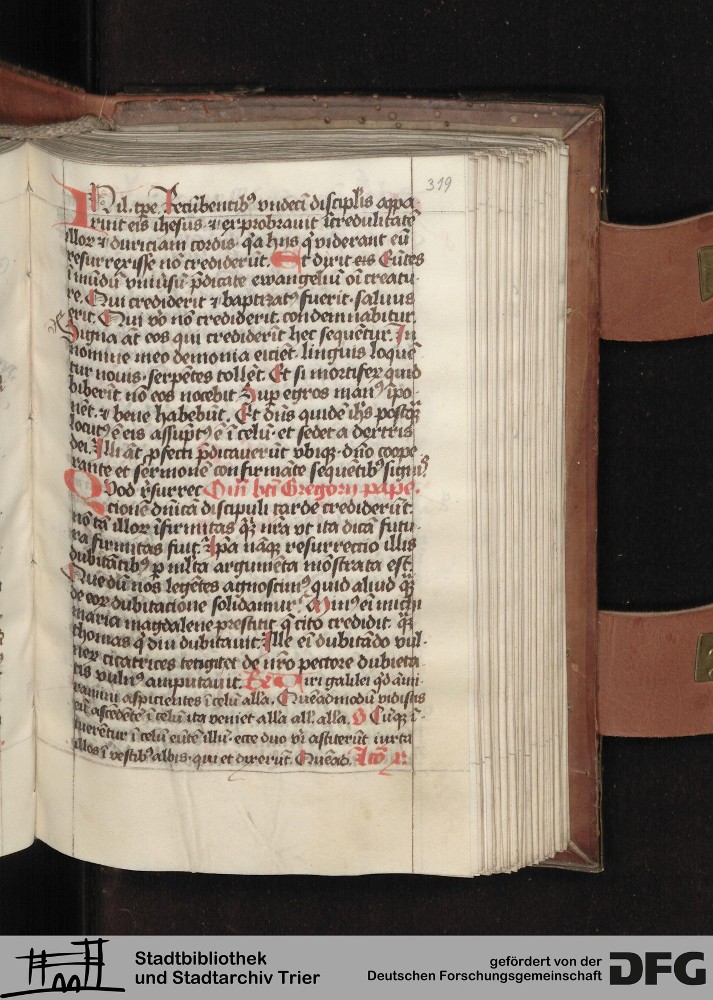 319
In il. tpe. Recūbentibꝰ vndeci discipĺis appa
ruit eis ihesus. ⁊ exprobrauit īcredulitatē
illoꝝ ⁊ duriciam cordis. qa hijs q̇ viderant eū
resurrexisse nō crediderūt. Et dixit eis Eūtes
ī mūdū vniūsū p̄dicate ewangeliū oī creatu-
re. Qui crediderit ⁊ baptizatꝰ fuerit. saluus
erit. Qui vo nō crediderit. condemnabitur.
Signa āt eos qui crediderīt hec sequētur. In
nomine meo demonia eicient. linguis loquē
tur nouis. serpētes tollēt. Et si mortiferꝝ quid
biberīt nō eos nocebit Suꝑ egros manꝰ īpo-
nēt. ⁊ bene habebūt. Et dūs quidē ihs postꝗ̄
locutꝰ ē eis assūptꝰ ē ī celū. et sedet a dextris
dei. Illi āt ꝓfecti p̄dicauerūt vbiqꝫ. dn̄o coope
rante et sermonē confirmāte sequētibꝰ signis
Quod r̄surrec Om̄ bt̄i Gregorij pape.
ctionē dn̄icā discipuli tarde crediderūt.
nō tā illoꝝ īfirmitas ꝗ̄ nr̄a vt ita dicā futu-
ra firmitas fuit. Ip̄a nāqꝫ resurrectio illis
dubitātibꝰ p ml̄ta argumēta mōstrata est.
Que dū nos legētes agnoscimꝰ quid aliud ꝗ̄
de eoꝝ dubitatione solidamur. Minꝰ ei michi
maria magdalene prestitit q̇ cito credidit. ꝗ̄
thomas q̇ diu dubitauit. Ille ei dubitādo vul-
neꝝ cicatrices tetigit et de nr̄o pectore dubieta-
tis vulnꝰ amputauit. Rꝫ Viri galilei qd ami-
ramini aspicientes ī celū alla. Quēadmodū vidistis
eū ascēdētē ī celū ita veniet alla all. alla. V Cūqꝫ ī-
tuerētur ī celū eūtē illū. ecce duo viri astiterūt iuxta
illos ī vestibꝰ albis. qui et dixerūt. Quēad. Lco
Stadtbibliothek
und Stadtarchiv Trier
gefördert von der
Deutschen Forschungsgemeinschaft
DFG